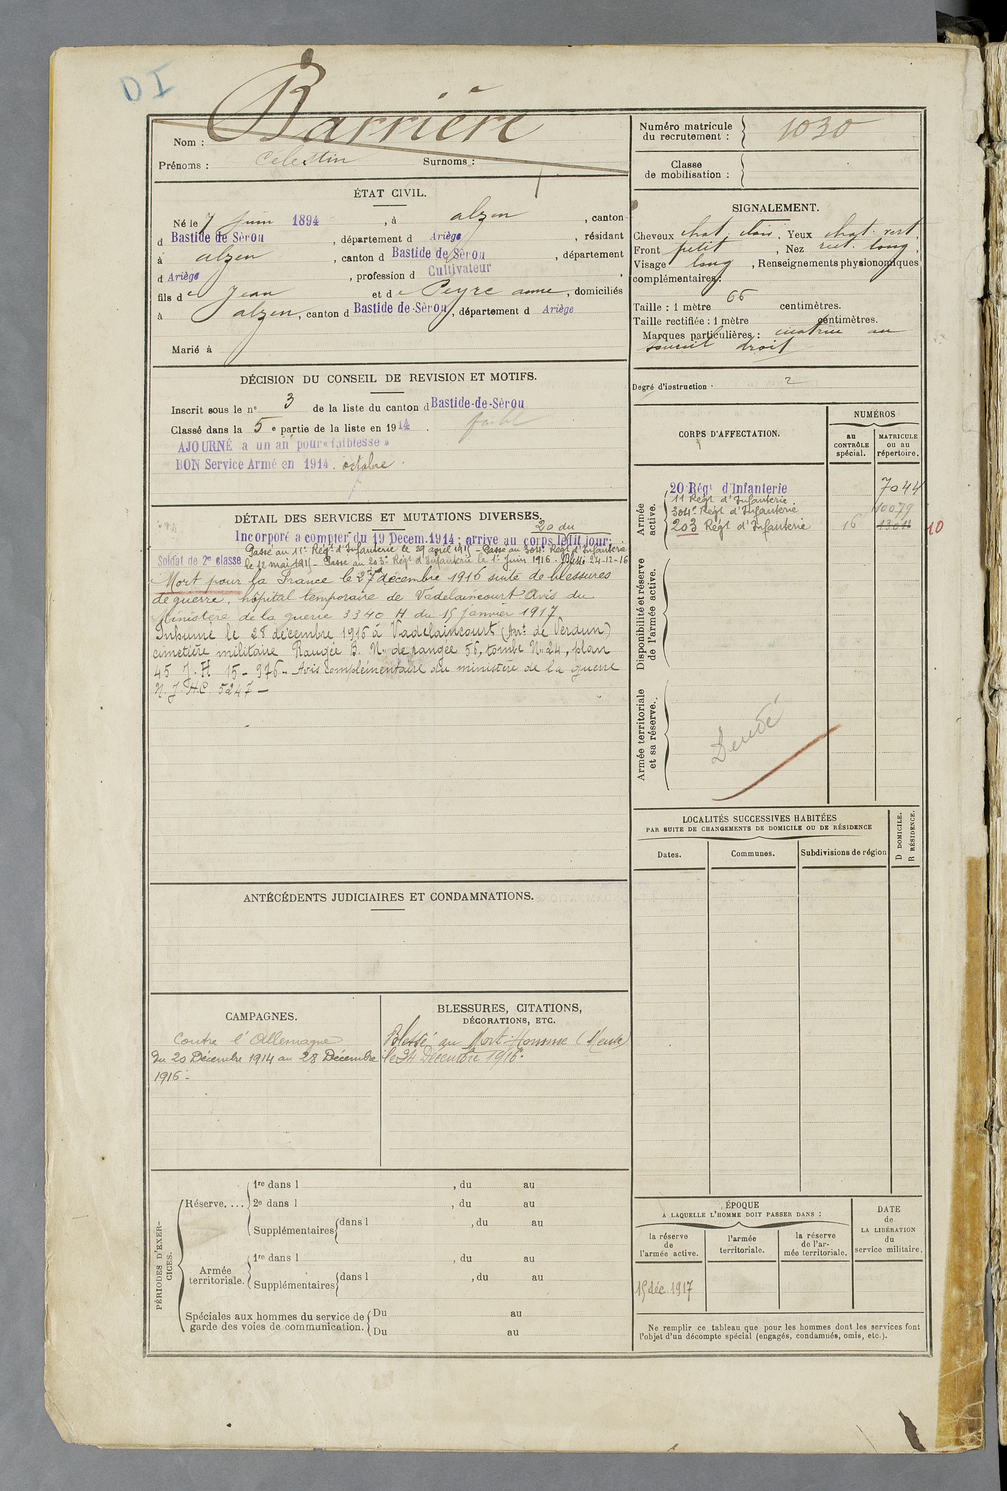 DI
Nom : Barrière
Prénoms : Celestin Surnoms :
Numéro matricule du recrutement : 1030
Classe de mobilisation :
ÉTAT CIVIL.
Né le 7 Juin 1894, à alzen, canton
d Bastide de Sèrou, département d Ariège, résidant
à alzen, canton d Bastide de Sèrou, département
d Ariège, profession d Cultivateur,
fils de Jean et de Peyre anne, domiciliés
à alzen, canton d Bastide de Sèrou, département d Ariège
Marié à
SIGNALEMENT.
Cheveux chat. clair, Yeux chat. vert,
Front petit, Nez rect. long
Visage long, Renseignements physionomiques
complémentaires:
Taille : 1 mètre 66 centimètres.
Taille rectifiée : 1 mètre centimètres.
Marques particulières : cicatrice au
sourcil droit
Degré d'instruction : 2
DÉCISION DU CONSEIL DE REVISION ET MOTIFS.
Inscrit sous le n° 3 de la liste du canton d Bastide-de-Sèrou
Classé dans la 5e partie de la liste en 1914. faible
AJOURNÉ à un an pour « faiblesse »
BON Service Armé en 1914. octobre.
CORPS D'AFFECTATION.
NUMÉROS
au CONTRÔLE spécial.
MATRICULE ou au répertoire.
Armée active.
20 Régt d'Infanterie 7044
11 Régt d'Infanterie
304e Régt d'Infanterie 10079
203 Régt d'Infanterie 16
10
Disponibilité et réserve de l'armée active.
Armée territoriale et sa réserve.
DÉTAIL DES SERVICES ET MUTATIONS DIVERSES.
20 du
Incorporé à compter du 19 Décem. 1914 ; arrive au corps le dit jour;
Soldat de 2e classe Passé au 11e Régt d'Infanterie le 29 avril 1915 - Passé au 304e Régt d'Infanterie
le 12 mai 1915 - Passé au 203e Régt d'Infanterie le 1er Juin 1916. 24-12-16
Mort pour la France le 27 décembre 1916 suite de blessures
de guerre, hôpital temporaire de Vadelaincourt Avis du
Ministère de la guerre 3340 H du 15 janvier 1917.
Inhumé le 28 décembre 1916 à Vadelaincourt (Art de Verdun)
cimetière militaire Rangée B. No de rangée 56, tombe No 24, plan
45 J. H 15-976 - Avis complémentaire du ministère de la guerre
N. J. HC 5247 -
Décédé
LOCALITÉS SUCCESSIVES HABITÉES
PAR SUITE DE CHANGEMENTS DE DOMICILE OU DE RÉSIDENCE
Dates. Communes. Subdivisions de région
D DOMICILE.
R RÉSIDENCE.
ANTÉCÉDENTS JUDICIAIRES ET CONDAMNATIONS.
CAMPAGNES.
Contre l'Allemagne
du 20 Décembre 1914 au 28 Décembre
1916 -
BLESSURES, CITATIONS,
DÉCORATIONS, ETC.
Blessé au Mort-Homme (Meuse)
le 24 Décembre 1916.
PÉRIODES D'EXERCICES.
Réserve....
1re dans l , du au
2e dans l , du au
Supplémentaires dans l , du au
Armée territoriale.
1re dans l , du au
Supplémentaires dans l , du au
Spéciales aux hommes du service de garde des voies de communication.
Du au
Du au
ÉPOQUE
A LAQUELLE L'HOMME DOIT PASSER DANS :
la réserve de l'armée active.
l'armée territoriale.
la réserve de l'armée territoriale.
DATE de LA LIBÉRATION du service militaire.
15 déc. 1917
Ne remplir ce tableau que pour les hommes dont les services font
l'objet d'un décompte spécial (engagés, condamnés, omis, etc.).